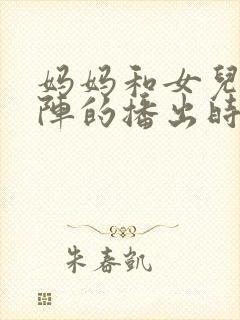 妈妈和女兒
陣的播出時
朱春凱